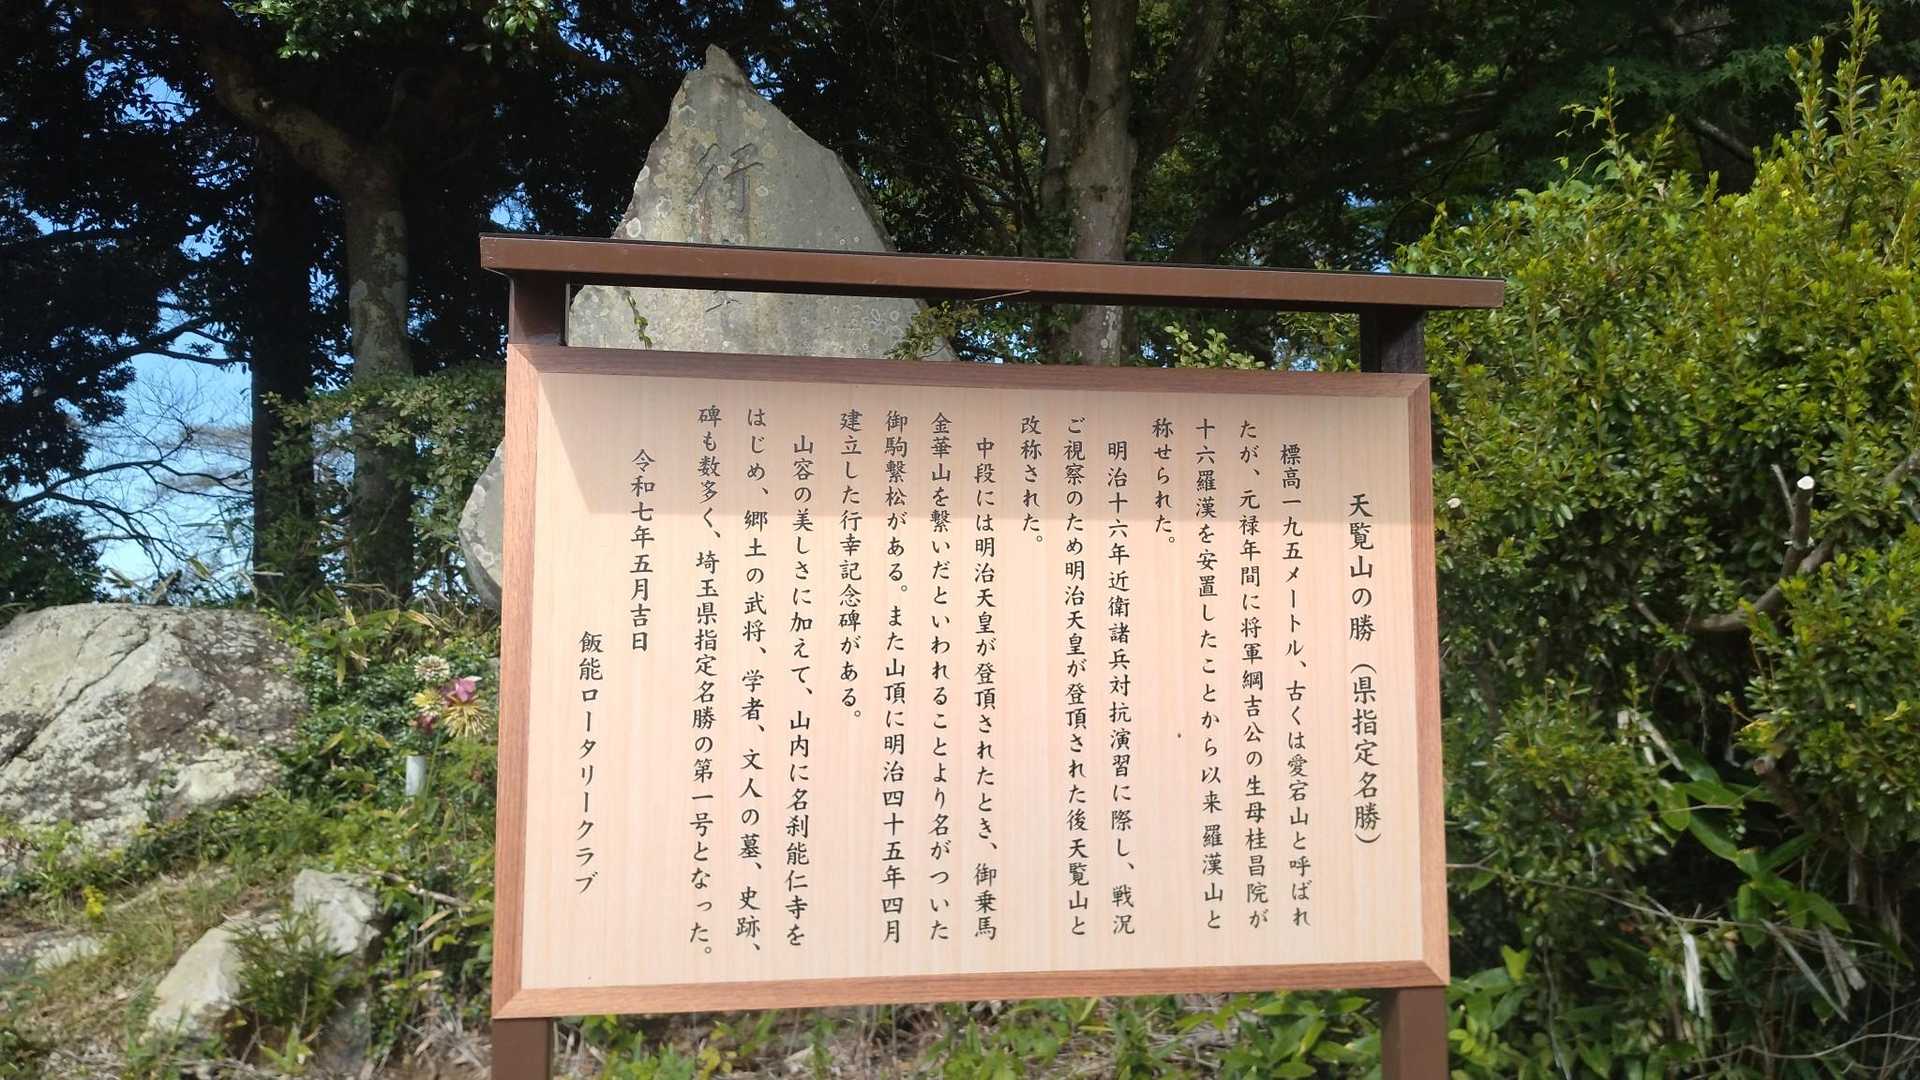 行
天覧山の勝（県指定名勝）
標高一九五メートル、古くは愛宕山と呼ばれ
たが、元禄年間に将軍綱吉公の生母桂昌院が
十六羅漢を安置したことから以来羅漢山と
称せられた。
明治十六年近衛諸兵対抗演習に際し、戦況
ご視察のため明治天皇が登頂された後天覧山と
改称された。
中段には明治天皇が登頂されたとき、御乗馬
金華山を繋いだといわれることより名がついた
御駒繋松がある。また山頂に明治四十五年四月
建立した行幸記念碑がある。
山容の美しさに加えて、山内に名刹能仁寺を
はじめ、郷土の武将、学者、文人の墓、史跡、
碑も数多く、埼玉県指定名勝の第一号となった。
令和七年五月吉日
飯能ロータリークラブ